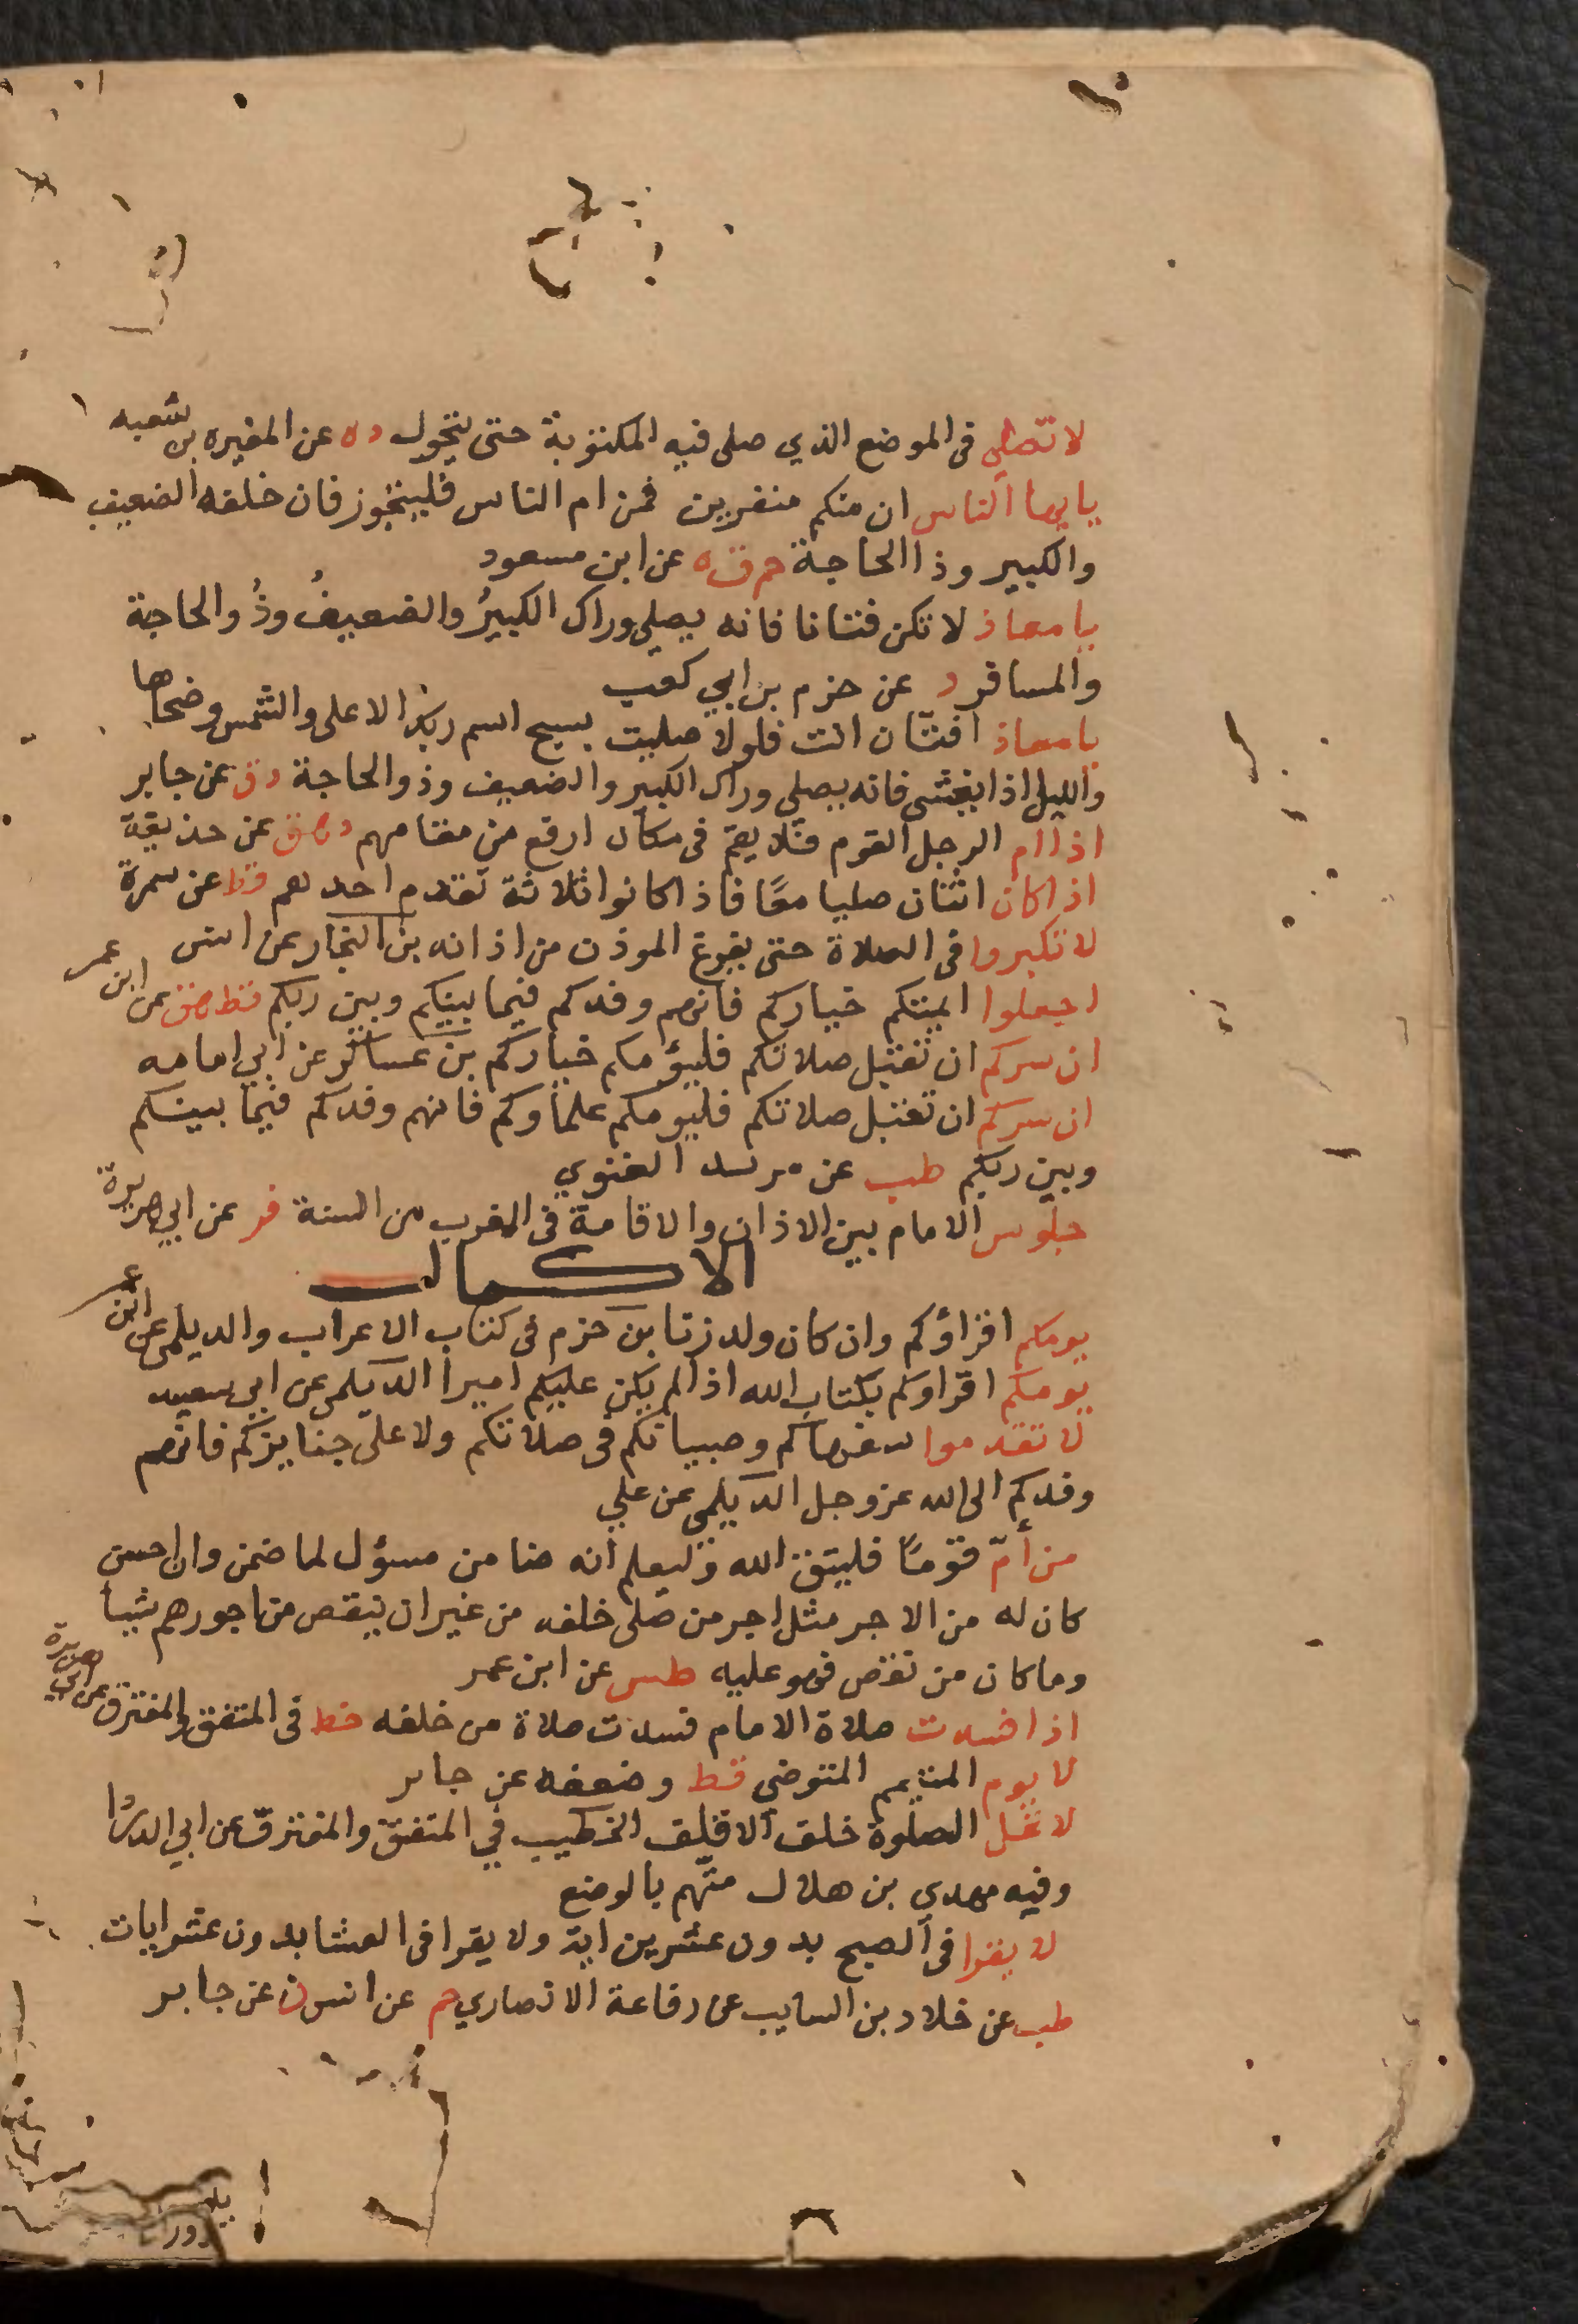 لا تصلي في الموضع الذي صلى فيه المكتوبة حتى يتحول ده عن المغيره بن شعبه
يايها الناس ان منكم منفرين فمن ام الناس فليتجوز فان خلفه الضعيف
والكبير وذا الحاجة حم ق ه عن ابن مسعود
يا معاذ لا تكن فتانا فانه يصلي وراك الكبيرُ والضعيفُ وذُوالحاجة
والمسافر د عن حزم بن ابي كعب
يا معاذ افتّان انت فلولا صليت بسبح اسم ربك الاعلى والشمس وضحاها
والليل اذا يغشى فانه يصلي وراك الكبير والضعيف وذوالحاجة د ق عن جابر
اذا ام الرجل القوم فلا يقم في مكان ارفع من مقامهم د هق عن حذيفة
اذا كان اثنان صليا معًا فاذا كانوا ثلاثة تقدم احدهم قط عن سمرة
لا تكبروا في الصلاة حتى يفرغ الموذن من اذانه بن النجار عن انس
اجعلوا ايمتكم خياركم فانهم وفدكم فيما بينكم وبين ربكم قط هق عن ابن عمر
ان سركم ان تقبل صلاتكم فليؤمكم خياركم بن عساكر عن ابي امامه
ان سركم ان تقبل صلاتكم فليومكم علماوكم فانهم وفدكم فيما بينكم
وبين ربكم طب عن مرثد الغنوي
جلوس الامام بين الاذان والاقامة في المغرب من السنة فر عن ابي هريرة
الاكمال
يومكم اقراؤكم وان كان ولد زنا بن حزم في كتاب الاعراب والديلمي عن ابن عمر
يومكم اقراوكم بكتاب الله اذا لم يكن عليكم اميرا الديلمي عن ابي سعيد
لا تقدموا سفهاكم وصبيانكم في صلاتكم ولا على جنايزكم فانهم
وفدكم الى الله عزوجل الديلمي عن علي
من أمّ قومًا فليتق الله وليعلم انه ضامن مسؤل لما ضمن وان احسن
كان له من الاجر مثل اجر من صلى خلفه من غير ان ينقص من اجورهم شيا
وماكان من نقص فهو عليه طس عن ابن عمر
اذا فسدت صلاة الامام فسدت صلاة من خلفه خط في المتفق والمفترق عن ابي هريرة
لا يوم المتيمم المتوضي قط وضعفه عن جابر
لا تحل الصلوة خلف الاقلف الخطيب في المتفق والمفترق عن ابي الدردا
وفيه مهدي بن هلال متّهم بالوضع
لا يقرا في الصبح بدون عشرين اية ولا يقرا في العشا بدون عشر ايات
طب عن خلاد بن السايب عن رفاعة الانصاري حم عن انس ن عن جابر